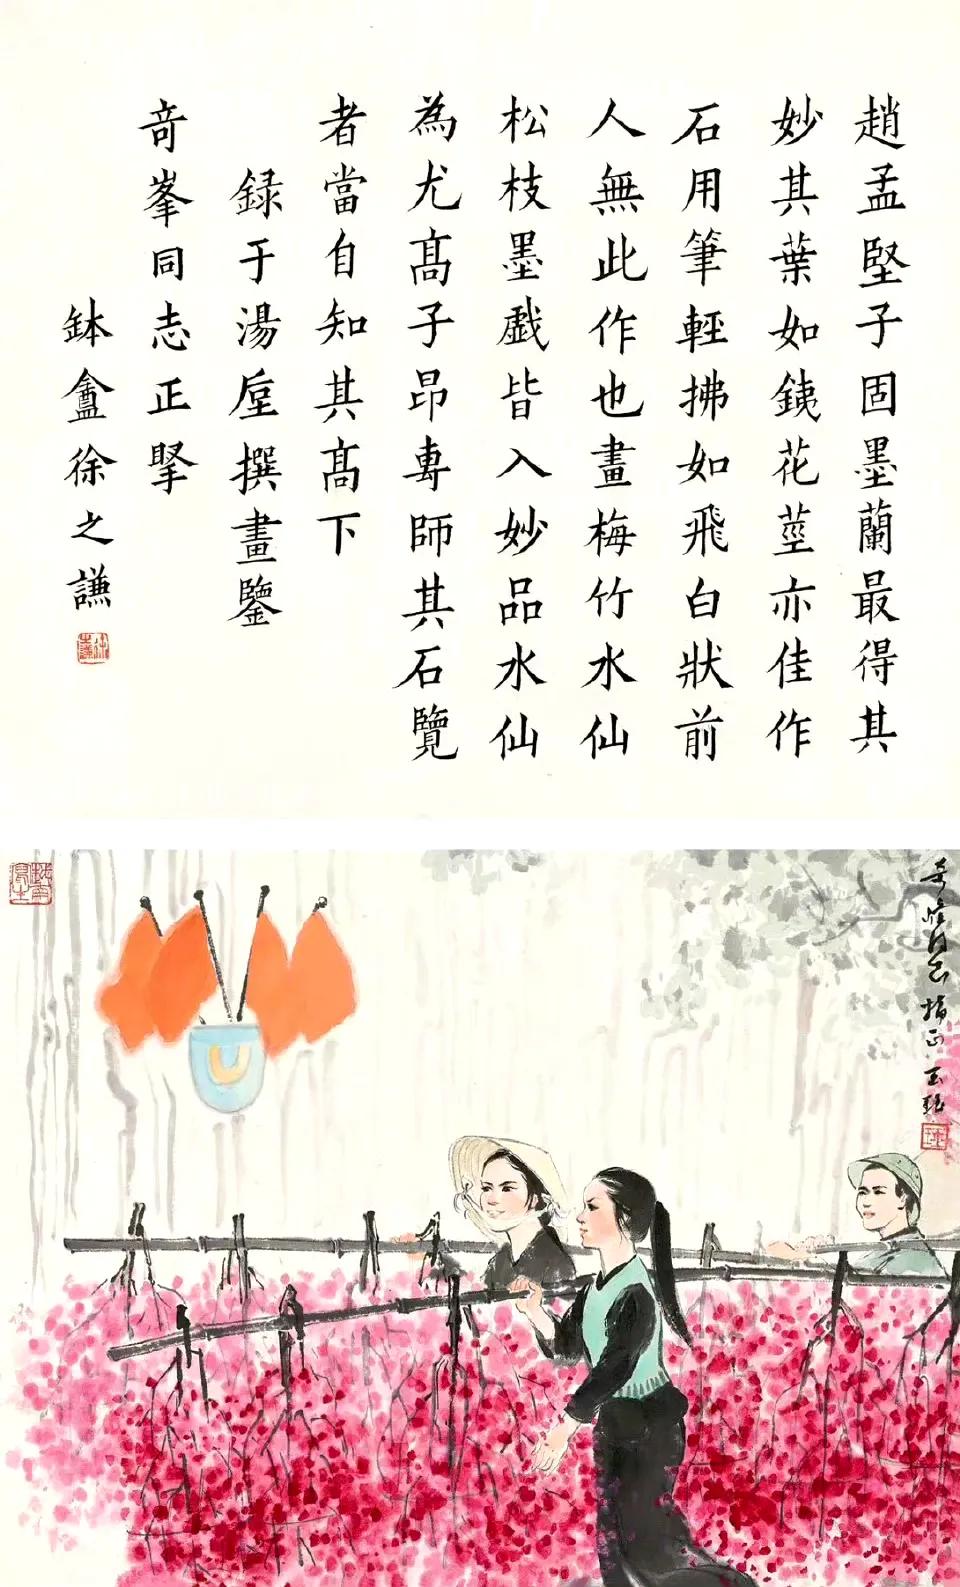 趙孟堅子固墨蘭最得其
妙其葉如銕花莖亦佳作
石用筆輕拂如飛白狀前
人無此作也畫梅竹水仙
松枝墨戲皆入妙品水仙
為尤髙子昂專師其石覽
者當自知其髙下
録于湯垕撰畫鑒
竒峯同志正掔
鉢盦徐之謙
奇峰同志指正 玉珏